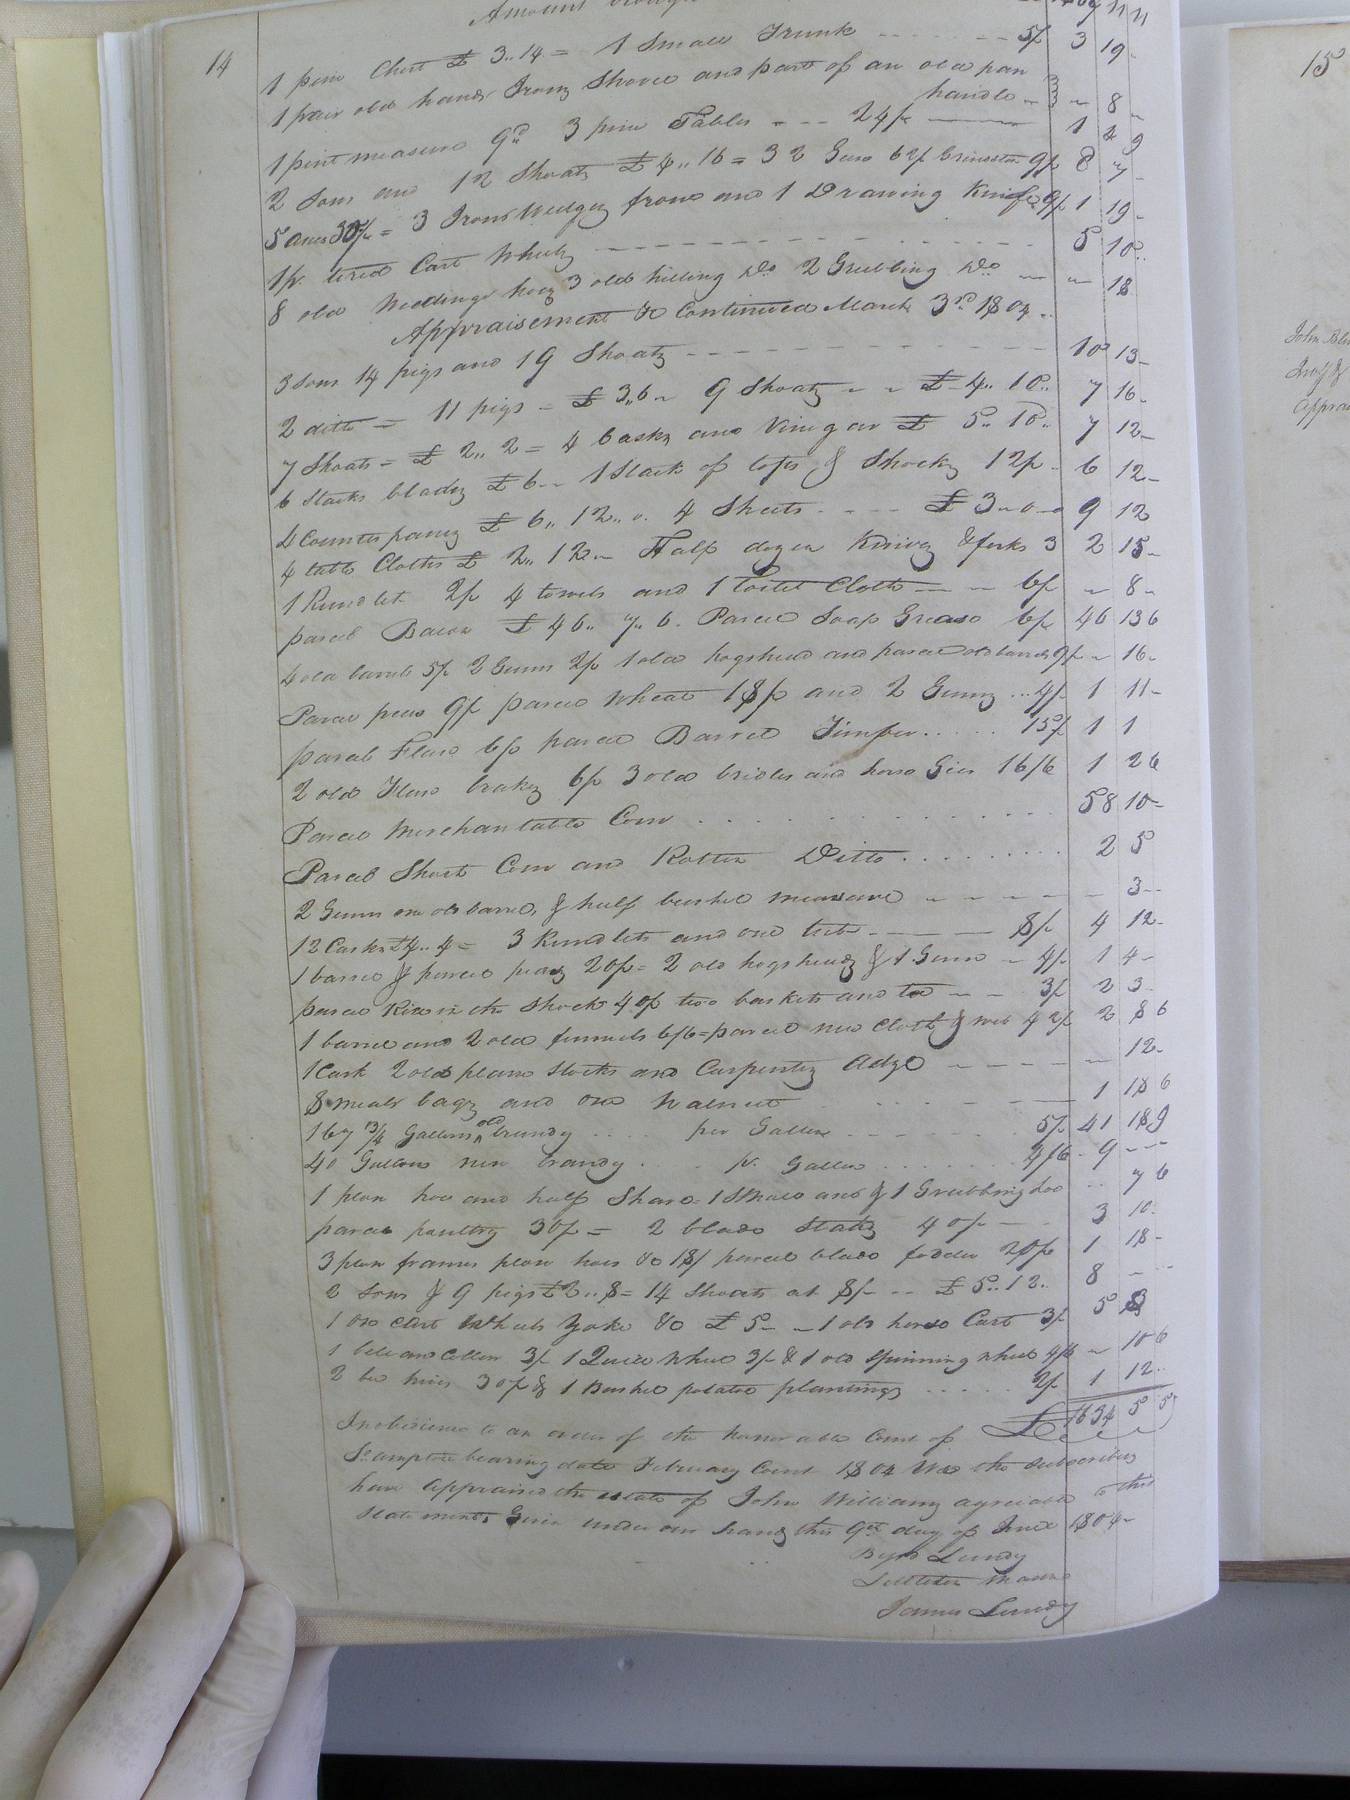 Amount
14
15
1 pine Chest £ 3..14 = 1 Small Trunk - - - - - 5/ 3 19 -
1 pair old hand Irons Shovel and part of an old pan
handle - " 8 -
1 pint measure 9d 3 pine Tables - - - 24/ 1 4 9
2 Sows and 12 Shoats £ 4..16 = 32 Geese 62/ 9/ 8 7 -
5 axes 30/ = 3 Iron Wedges frow and 1 Drawing Knife 9/ 1 19 -
1 pr. tired Cart Wheels - - - - - - 5 10..
8 old Weeding hoes 3 old hilling Do 2 Grubbing Do - " 18
Appraisement &c Continued March 3rd 1804..
3 Sows 14 pigs and 19 Shoats - - - - - - 10 13 -
2 ditto = 11 pigs - £ 3,,6 - 9 Shoats - - £ 4.. 10.. 7 16 -
7 Shoats = £ 2,, 2 = 4 Casks and Vinegar £ 5.. 10.. 7 12 -
6 Stacks blades £ 6 - - 1 Stack of tops & Shocks 12/ - 6 12 -
4 Counterpanes £ 6,, 12,, 0. 4 Sheets - - - - £ 3 - 0 - 0 9 12
4 table Cloths £ 2,, 12 - Half dozen Knives & forks 3 2 15 -
1 Rundlet 2/ 4 towels and 1 Toilet Cloth - - - 6/ " 8 -
parcel Bacon £ 46.. 7.. 6. Parcel Soap Grease 6/ 46 13 6
4 old barrels 5/ 2 Gums 2/ 1 old hogshead and parcel old barrels 9/ - 16 -
Parcel peas 9/ parcel Wheat 18/ and 2 Gums ... 4/ 1 11 -
parcel Flax 6/ parcel Barrel Timber..... 15/ 1 1
2 old Flax brakes 6/ 3 old bridles and horse Gear 16/6 1 2 6
Parcel Merchantable Corn . . . . . . . . 58 10 -
Parcel Short Corn and Rotten Ditto . . . . . . . . 2 5
2 Gums one old barrel, & half bushel measure - - - - - 3 - -
12 Casks £ 4.. 4 = 3 Rundlets and one tub - - - 8/ 4 12 -
1 barrel & parcel peas 20/ = 2 old hogsheads & 1 Gum - 4/ 1 4 -
parcel Rice in the Shock 40/ two baskets and - - 3/ 2 3 -
1 barrel and 2 old funnels 6/6 = parcel new Cloth & 42/ 2 8 6
1 Cask 2 old plane Stocks and Carpenters Adze - - - - - 12 -
8 meal bags and one . . . . . 1 18 6
167 3/4 Gallons old brandy . . . . per Gallon - - - - - 5/ 41 18 9
40 Gallons new brandy . . . pr. Gallon . . . . . . 4/6 - 9 - -
1 plow hoe and half Share = 1 and & 1 Grubbing hoe .. 7 6
parcel poultry 30/ = 2 blade Stacks 40/ - - 3 10 -
3 plow frames plow hoes &c 18/ parcel blade fodder 20/ 1 18 -
2 Sows & 9 pigs £ 2.. 8 = 14 Shoats at 8/ - - £ 5.. 12.. 8 - -
1 ox cart Wheels Yoke &c £ 5 - - 1 old horse Cart 3/ 5 3
1 bell and Collar 3/ 1 Quill Wheel 3/ & 1 old Spinning wheel 4/6 - 10 6
2 bee hives 30/ & 1 Bushel potatoe plantings . . . . . 2/ 1 12..
£ 1634 5 5
In obedience to an order of the honorable Court of
So. ampton bearing date February Court 1804 We the Subscribers
have Appraised the estate of John Williams agreeable to this
Statement Given under our hands this 9th day of June 1804 -
Lundy
Littleton
James Lundy
John
Appra